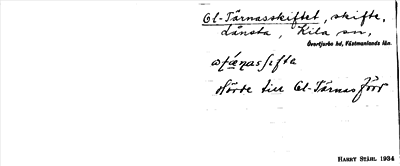 Ol-Tärnasskiftet, skifte,
Lånsta, Kila sn,
Övertjurbo hd, Västmanlands län.
Hörde till Ol-Tärnas jord
HARRY STÅHL 1934